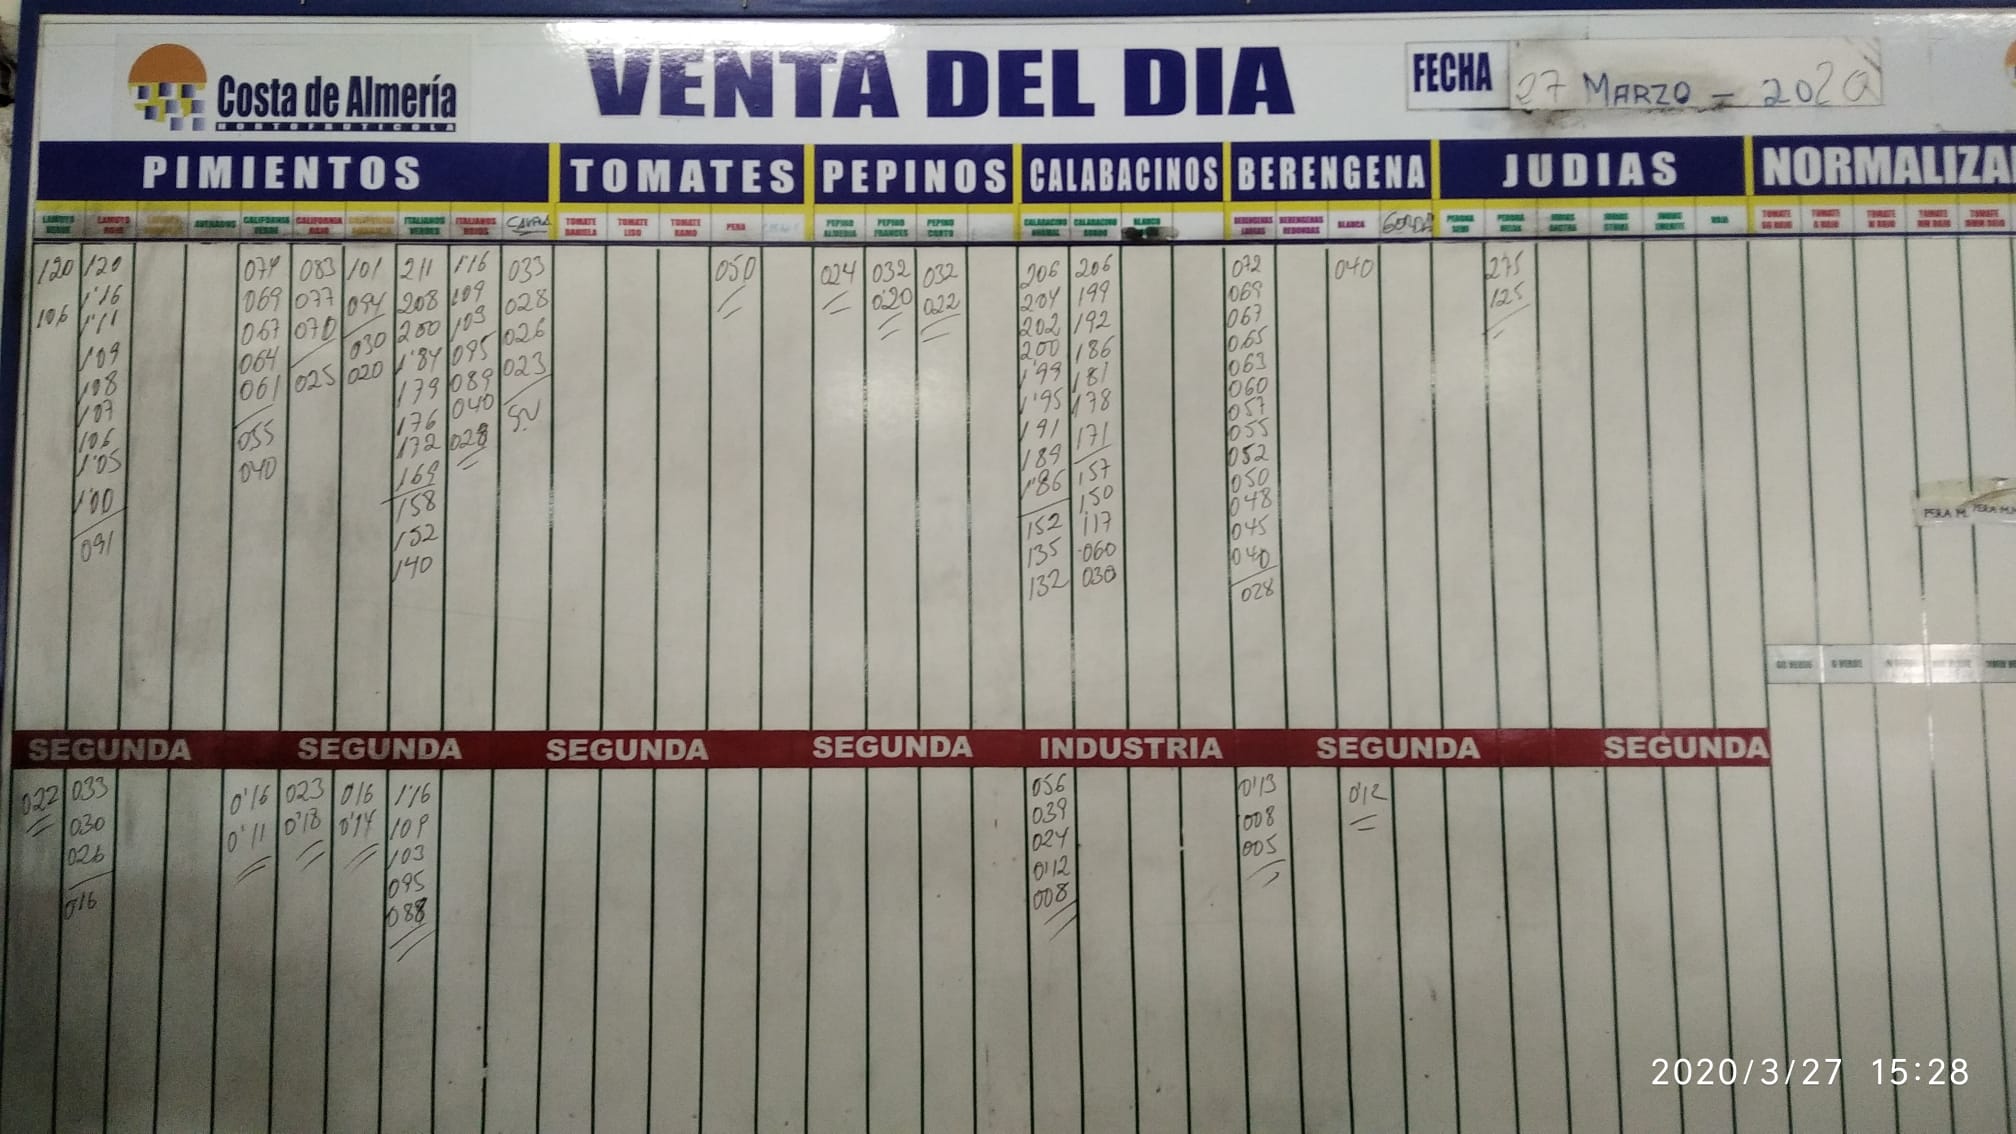 Costa de Almería
HORTOFRUTICOLA
VENTA DEL DIA
FECHA 27 MARZO - 2020
PIMIENTOS TOMATES PEPINOS CALABACINOS BERENGENA JUDIAS NORMALIZA
LAMUYO VERDE LAMUYO ROJO CALIFORNIA VERDE CALIFORNIA ROJO ITALIANOS VERDES ITALIANOS ROJOS TOMATE DANIELA TOMATE LISO TOMATE RAMO PERA PEPINO ALMERIA PEPINO FRANCES PEPINO CORTO CALABACINO GORDO BLANCO BERENGENAS LARGAS BERENGENAS REDONDAS BLANCA GORDA PERONA SEMI ROJA
120 120 074 083 101 211 1'16 033 050 024 032 032 206 206 072 040 275
106 1'16 069 077 094 208 109 028 020 022 204 199 069 125
1'11 067 070 030 200 103 026 202 192 067
109 064 025 020 1'84 095 023 200 186 065
108 061 179 089 S.V 1'99 181 063
107 055 176 040 1'95 178 060
106 040 172 028 191 171 057
1'05 169 189 157 055
1'00 158 1'86 150 052
091 152 152 117 050
140 135 060 048
132 030 045
040
028
PERA M.
GG VERDE G VERDE
SEGUNDA SEGUNDA SEGUNDA SEGUNDA INDUSTRIA SEGUNDA SEGUNDA
022 033 0'16 023 016 1'16 056 0'13 0'12
030 0'11 0'18 0'14 109 039 008
026 103 024 005
016 095 0'12
088 008
2020/3/27 15:28